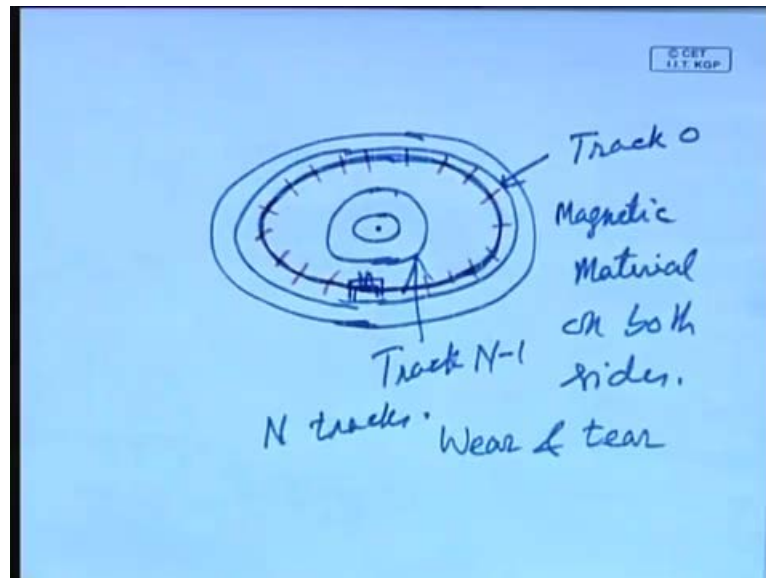 © CET
I.I.T. KGP
Track 0
Magnetic
Material
on both
sides.
Track N-1
N tracks.
Wear & tear